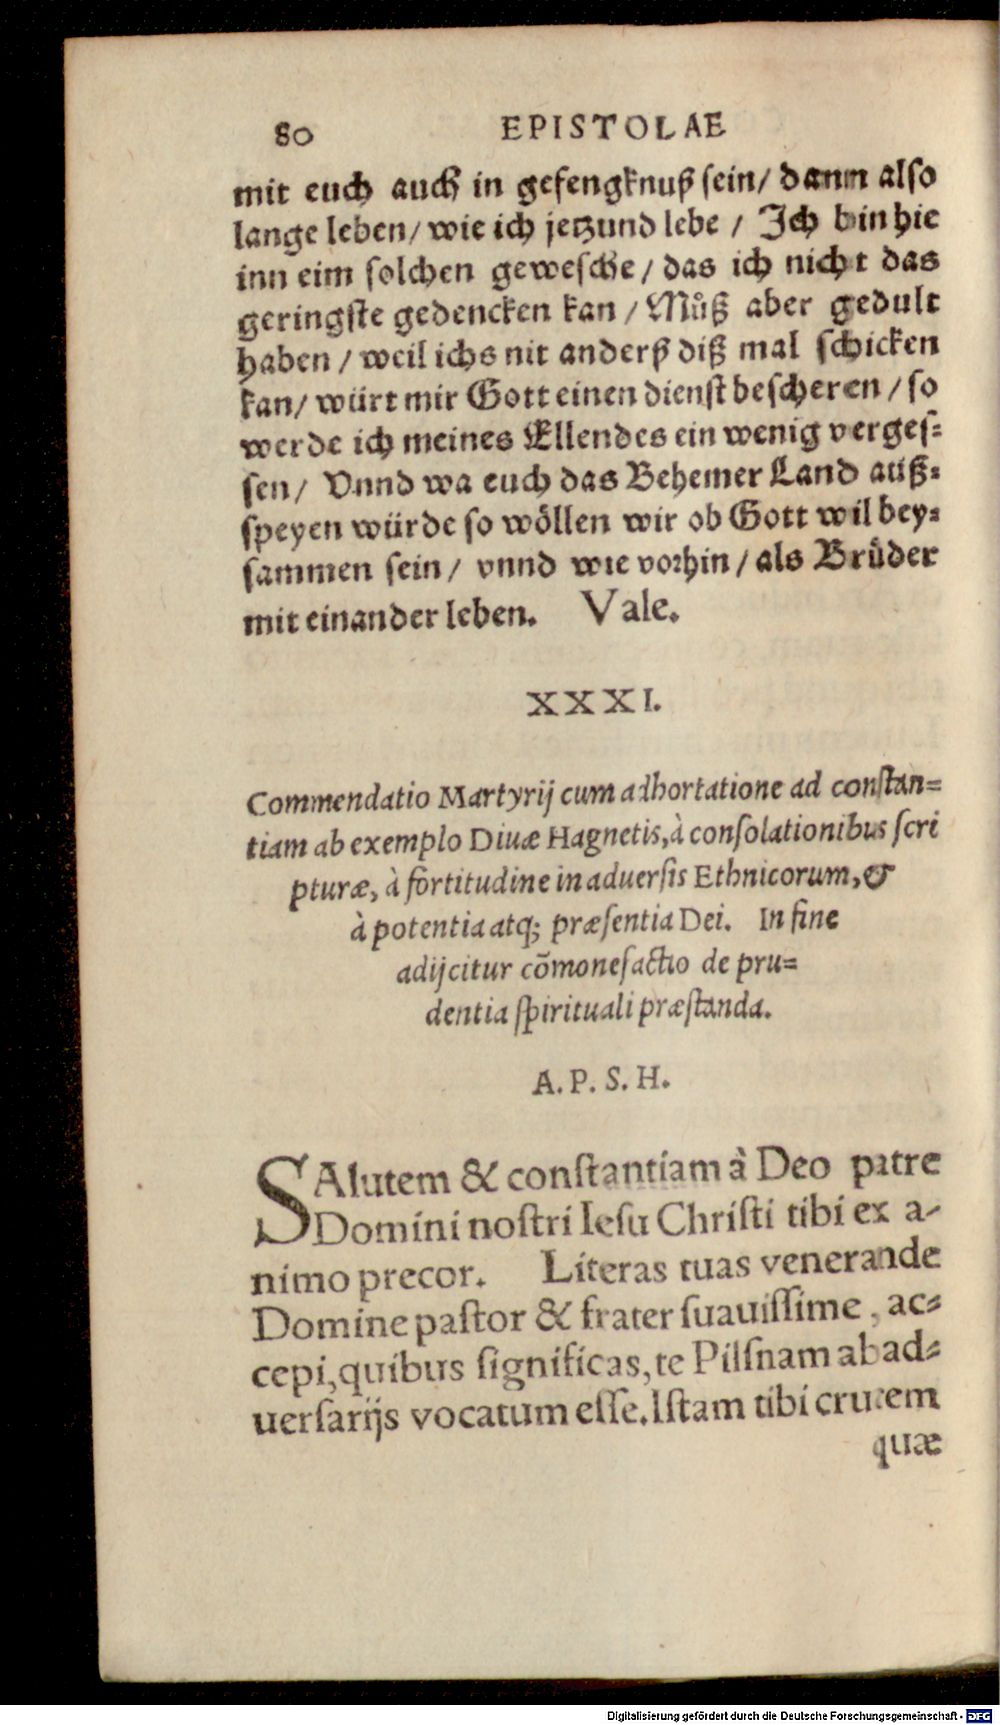 80 EPISTOLAE
mit euch auch in gefengknuß sein/ dann also
lange leben/ wie ich jetzund lebe / Ich bin hie
inn eim solchen gewesche/ das ich nicht das
geringste gedencken kan / Můß aber gedult
haben / weil ichs nit anderß diß mal schicken
kan/ würt mir Gott einen dienst bescheren / so
werde ich meines Ellendes ein wenig verges⸗
sen/ Vnnd wa euch das Behemer Land auß⸗
speyen würde so wöllen wir ob Gott wil bey⸗
sammen sein/ vnnd wie vorhin/ als Brüder
mit einander leben. Vale.
XXXI.
Commendatio Martyrij cum adhortatione ad constan⸗
tiam ab exemplo Diuæ Hagnetis, à consolationibus scri
pturæ, à fortitudine in aduersis Ethnicorum, &
à potentia atq; præsentia Dei. In fine
adijcitur cõmonefactio de pru⸗
dentia spirituali præstanda.
A. P. S. H.
SAlutem & constantiam à Deo patre
Domini nostri Iesu Christi tibi ex a-
nimo precor. Literas tuas venerande
Domine pastor & frater suauissime, ac⸗
cepi, quibus significas, te Pilsnam ab ad⸗
uersarijs vocatum esse. Istam tibi crucem
quæ
Digitalisierung gefördert durch die Deutsche Forschungsgemeinschaft - DFG